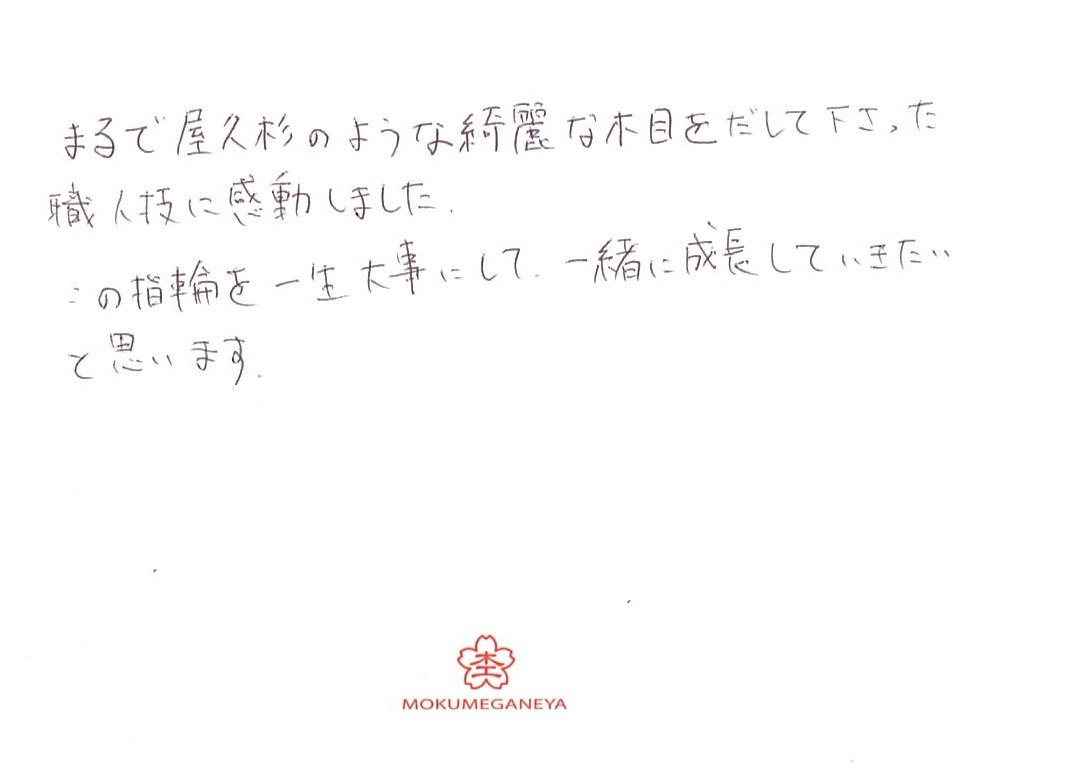 まるで屋久杉のような綺麗な木目をだして下さった
職人技に感動しました.
この指輪を一生大事にして. 一緒に成長していきたい
と思います.
MOKUMEGANEYA